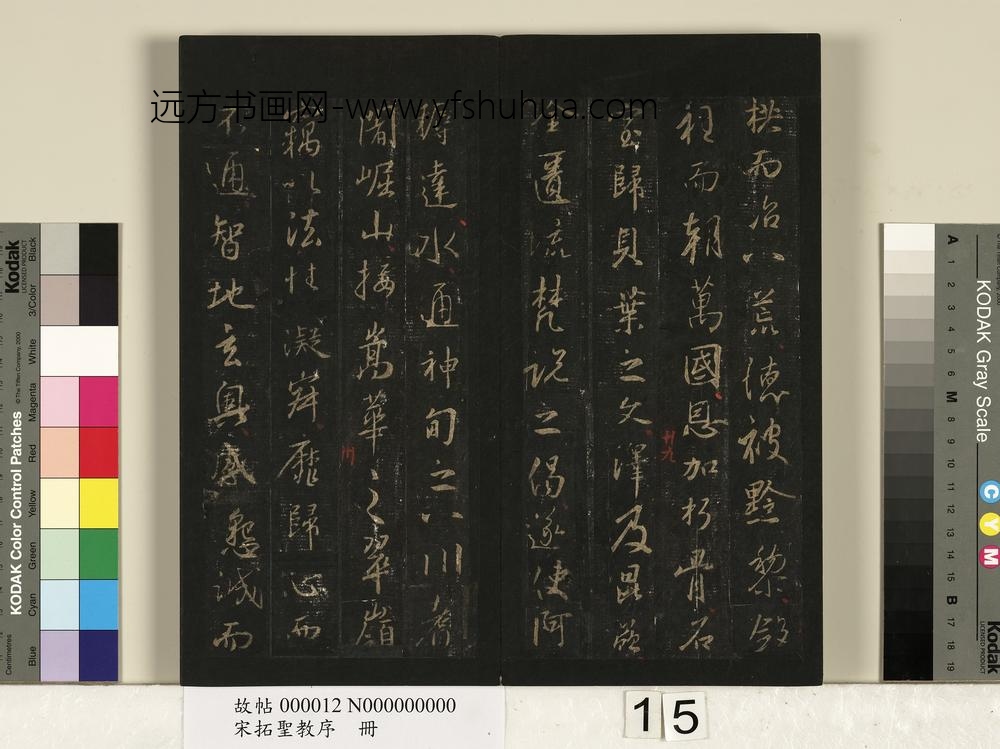 远方书画网-www.yfshuhua.com
栱而治八荒德被黔黎斂
衽而朝萬國恩加朽骨石
室歸貝葉之文澤及昆蟲
廿九
金匱流梵說之偈遂使阿
耨達水通神甸之八川耆
闍崛山接嵩華之翠嶺
卅
竊以法性凝寂靡歸心而
不通智地玄奧感懇誠而
故帖 000012 N000000000
宋拓聖教序 冊
15
Kodak
LICENSED PRODUCT
KODAK Color Control Patches
© The Tiffen Company, 2000
Centimetres
Blue
Cyan
Green
Yellow
Red
Magenta
White
3/Color
Black
KODAK Gray Scale
A 1 2 3 4 5 6 M 8 9 10 11 12 13 14 15 B 17 18 19
C
Y
M
Kodak
LICENSED PRODUCT